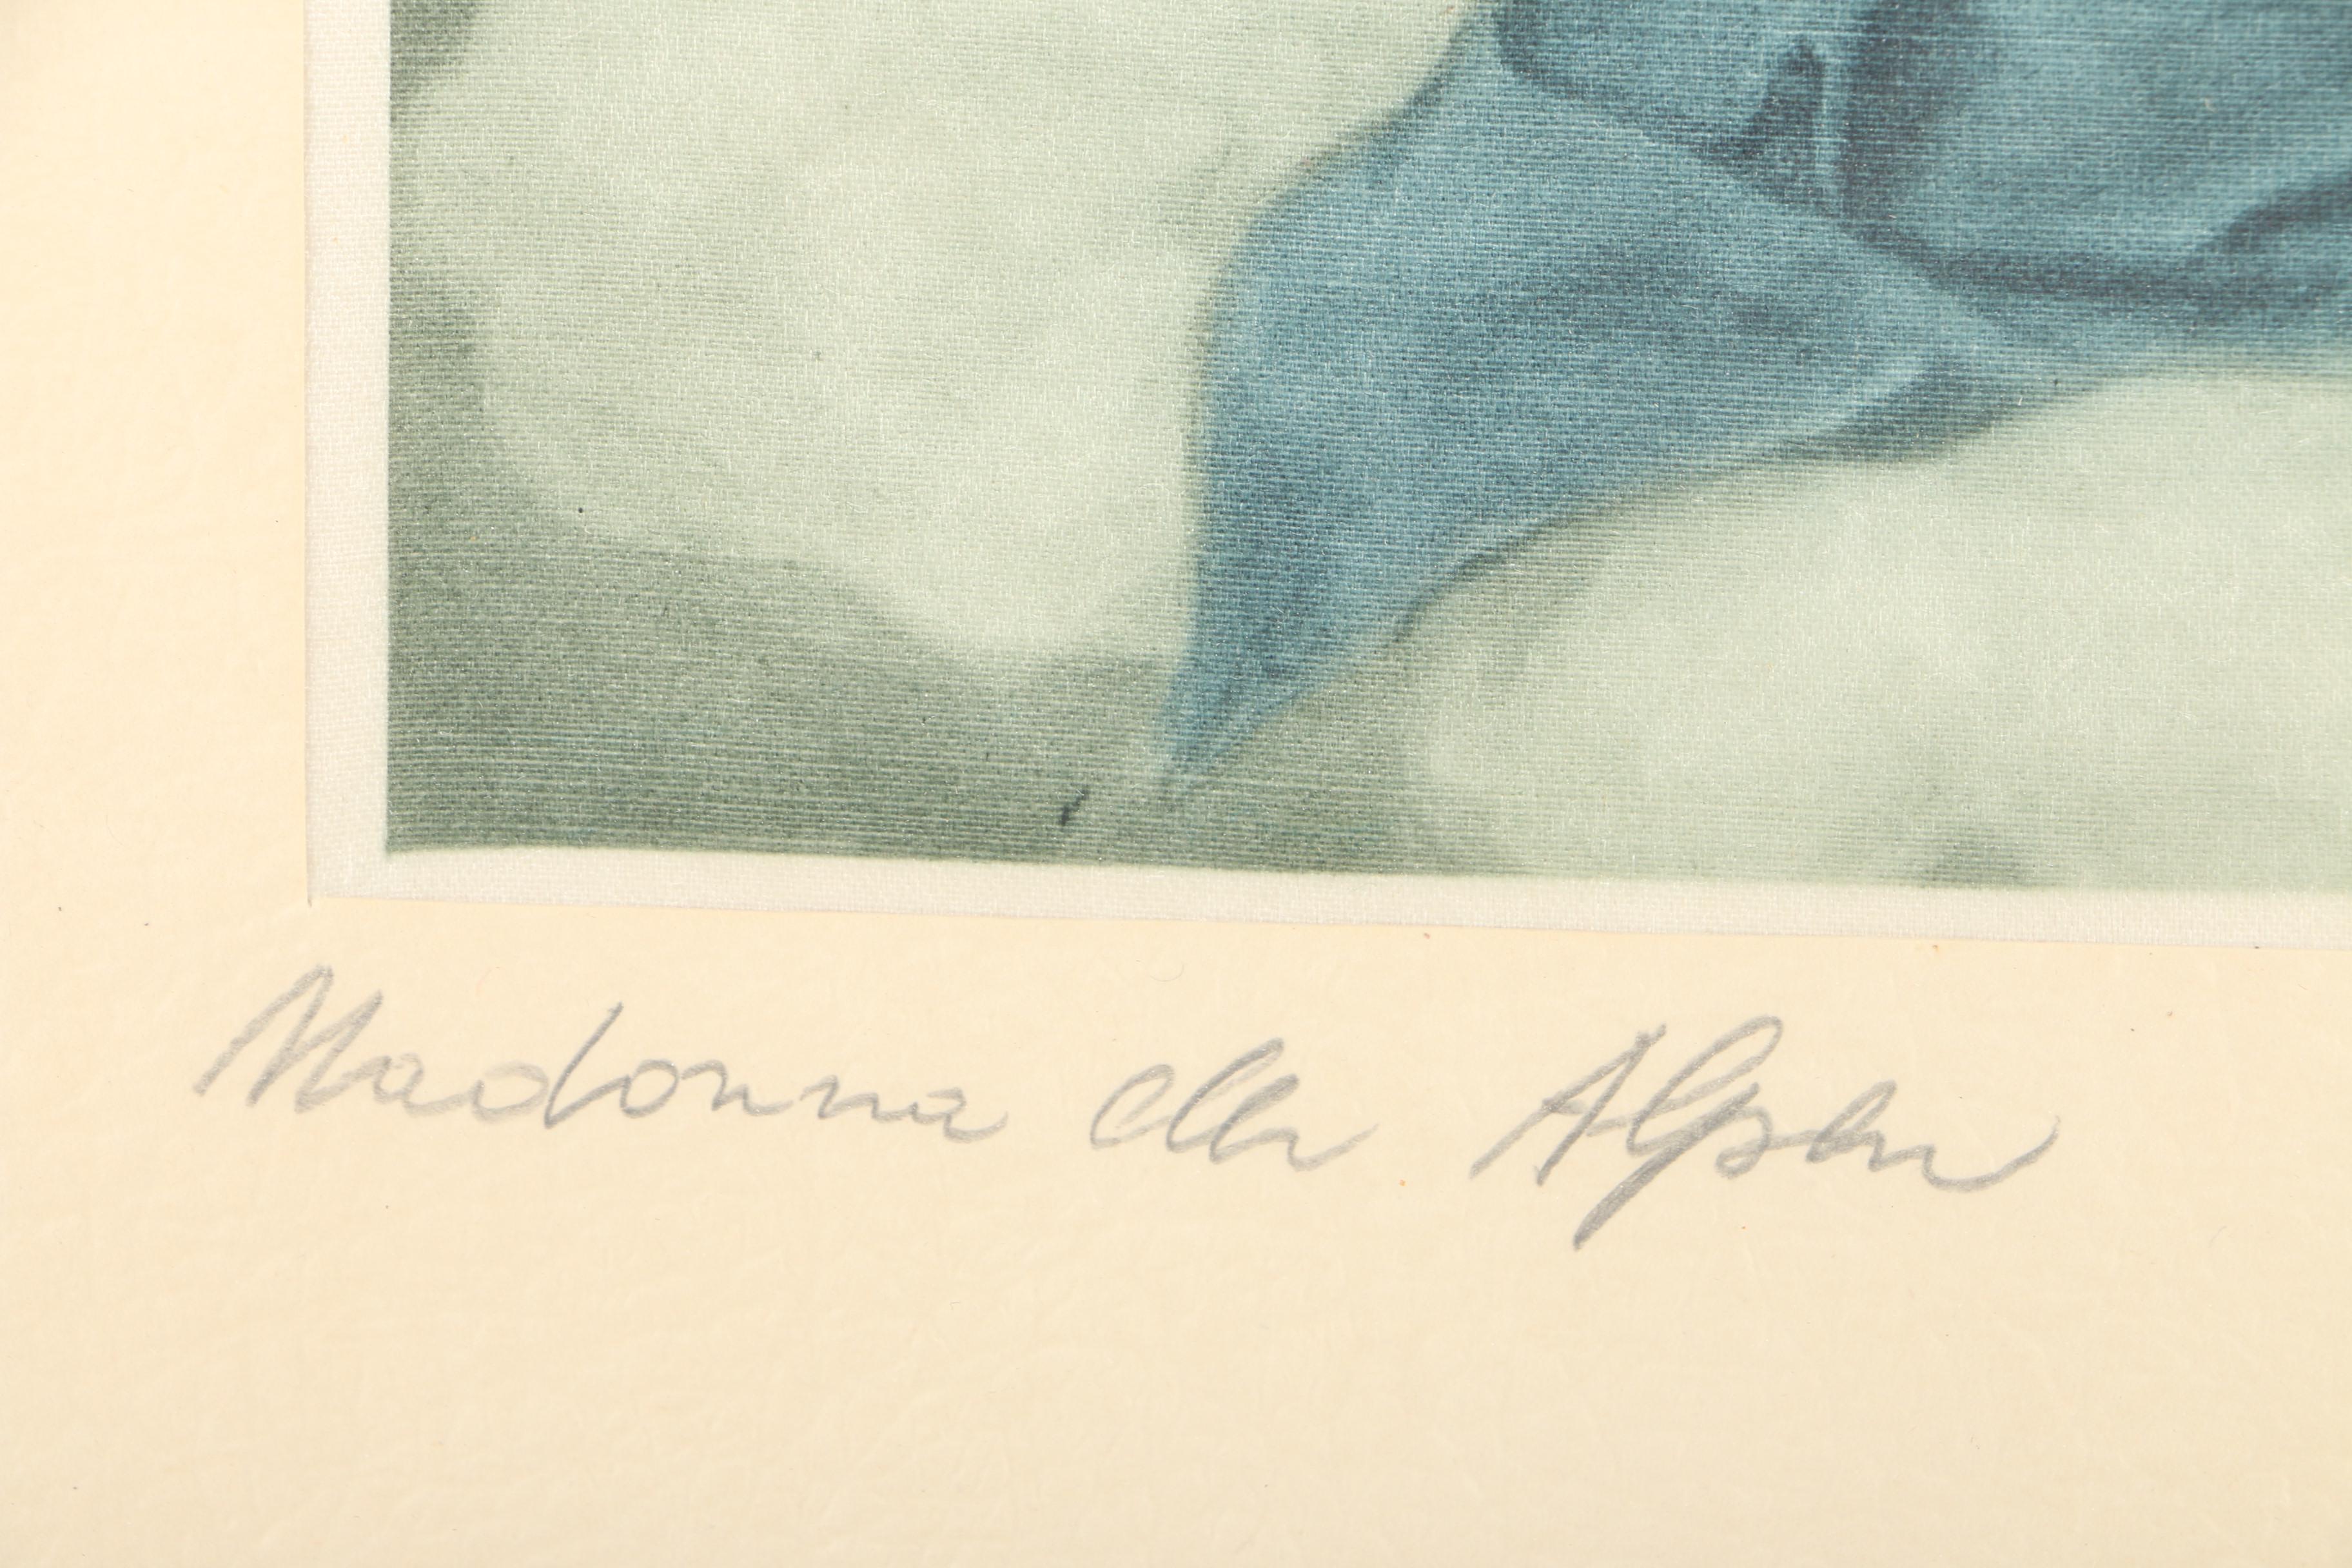 Madonna der Alpen